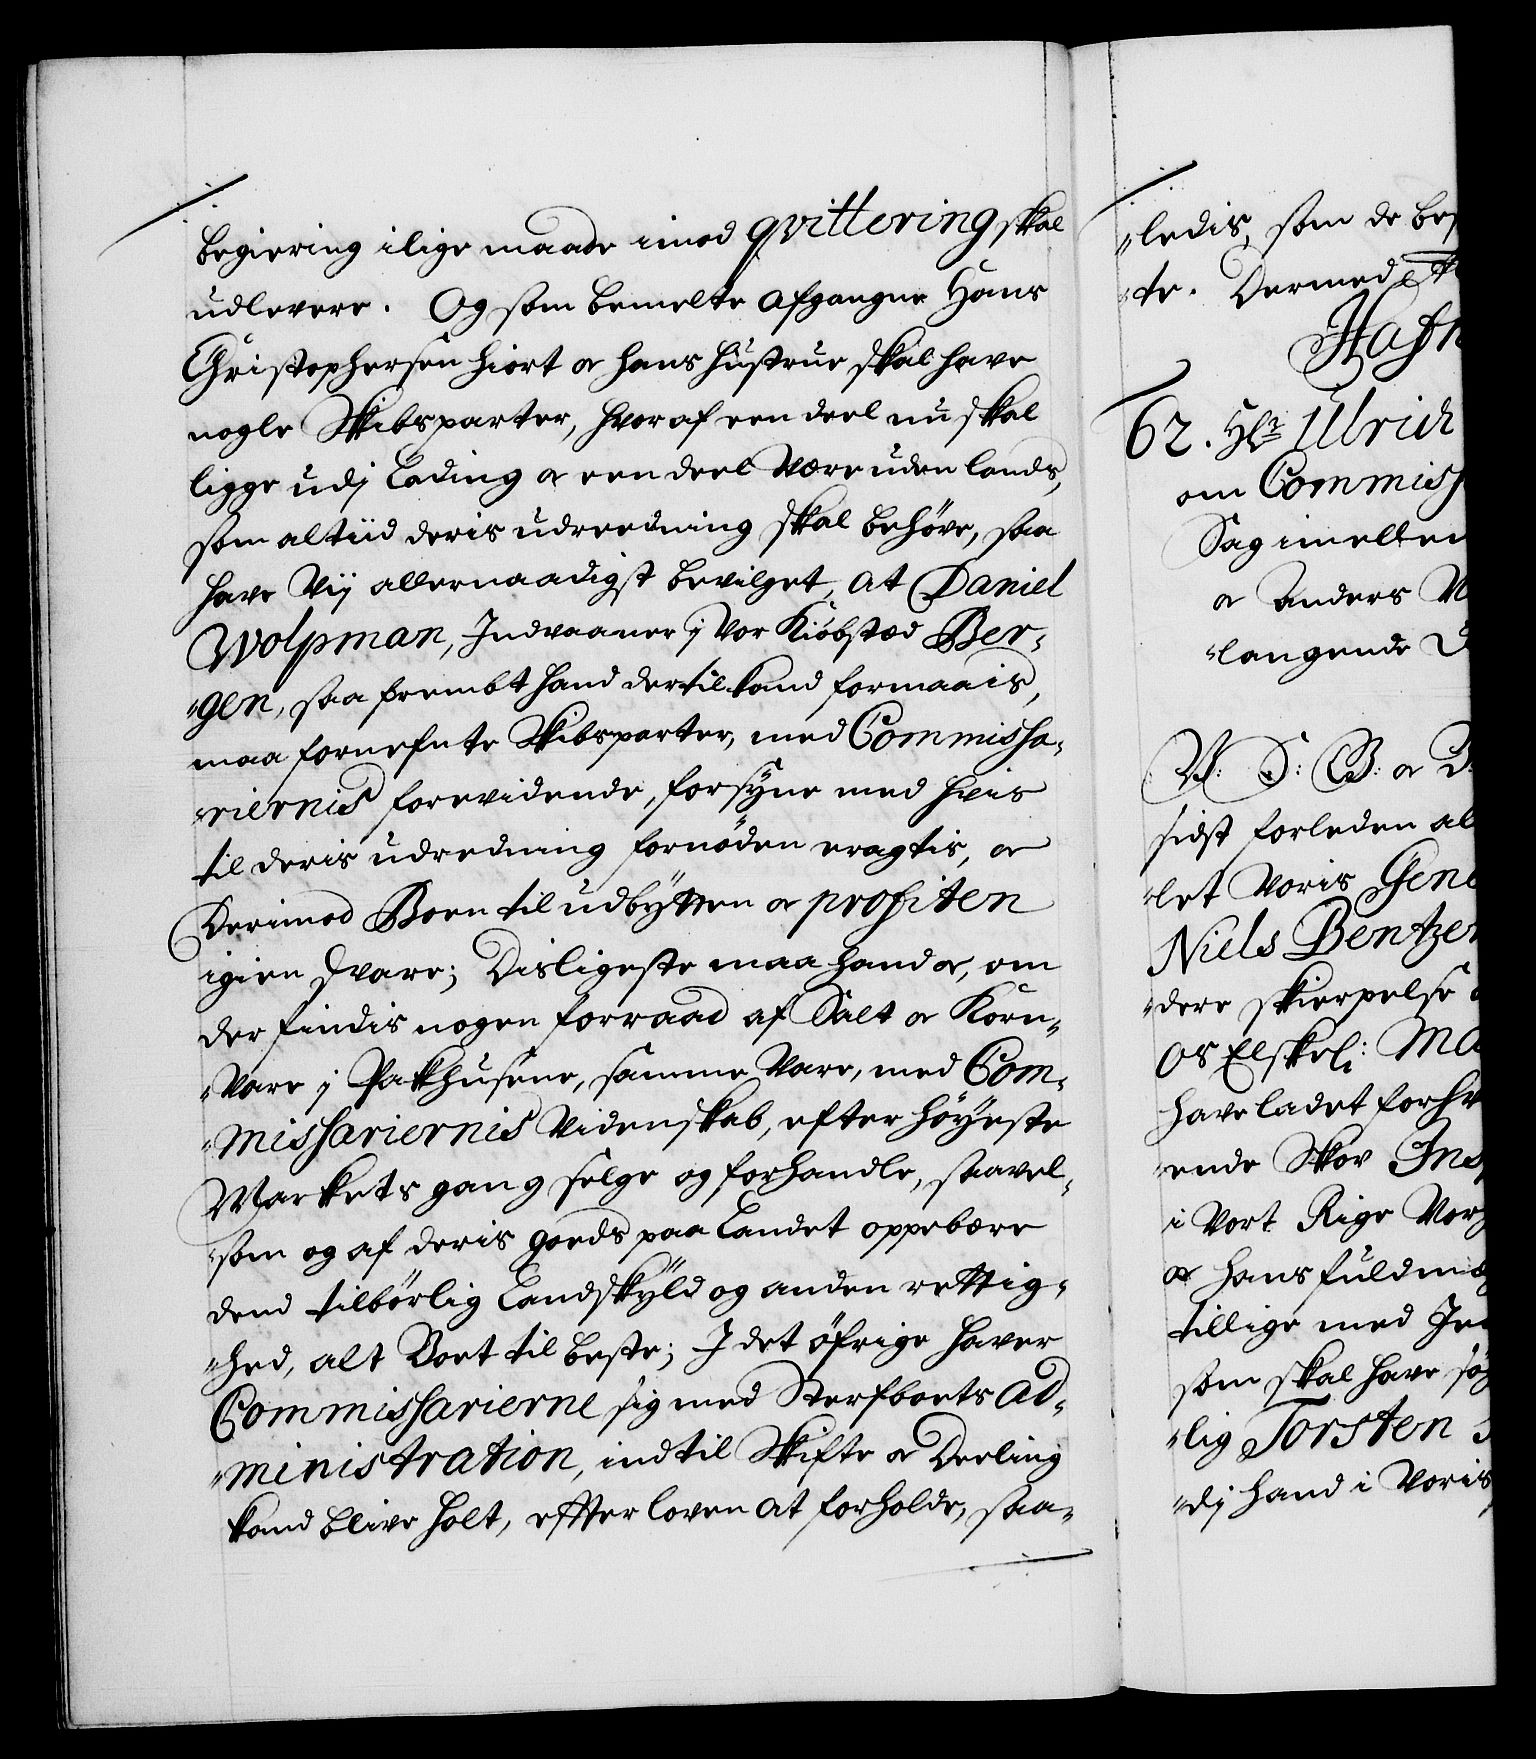 begiering ilige maade imod qvittering skal
udlevere. Og som bemelte afgangne Hans
Christophersen Hiort oc hans hustrue skal have
nogle Skibsparter, hvoraf een deel nu skal
ligge udj Lading oc een deel være uden lands,
som altiid deris udreedning skal behøve, saa
have Vij allernaadigst bevilget, at Daniel
Wolpman, Indvaaner j vor Kiøbsted Ber-
gen, saa frembt hand dertil kand formaais,
maa fornefnte Skibsparter, med Commissa-
riernis forevidende, forsyne med hvis
til deris udredning fornøden eragtis, oc
Derimod Boen til udbytten oc profiten
igien svare; Disligeste maa hand oc, om
der findis nogen forraad af Salt oc Korn-
Vare j Pakhusene, samme Vare, med Com-
missariernis Videnskab, efter høyeste
Markets gang selge og forhandle, saavel-
som og af deris goeds paa Landet oppebære
dend tilbørlig Landskyld og anden rettig-
hed, alt Boet til beste; J det øfrige haver
Commissarierne sig med Sterfboets Ad-
ministration, indtil Skifte oc Deeling
kand blive holt, effter loven at forholde, saa-
ledis, som de bes
te. Dermed
Hafn
62. Hr Ulrich
om Commiss
Sag imellem
oc Anders
langende
V: S: G: oc
sidst forleden al
let Voris Gene
Niels Bentzen
dere skierpelse
OS Elskel: Ma
have ladet forhv
ende Skov Ins
i Vort Rige Nor
oc hans fuldmæ
tillige med
som skal have
lig Torsten
dj hand i Voris